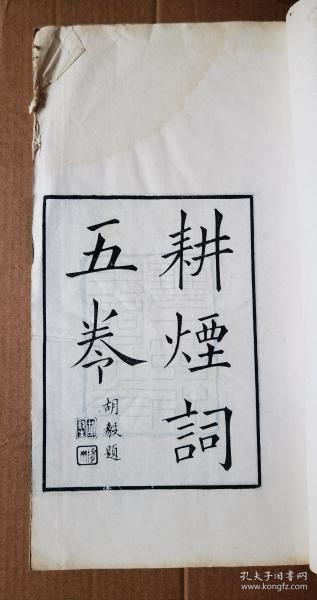 耕煙詞
五卷
胡毅題
孔夫子旧书网